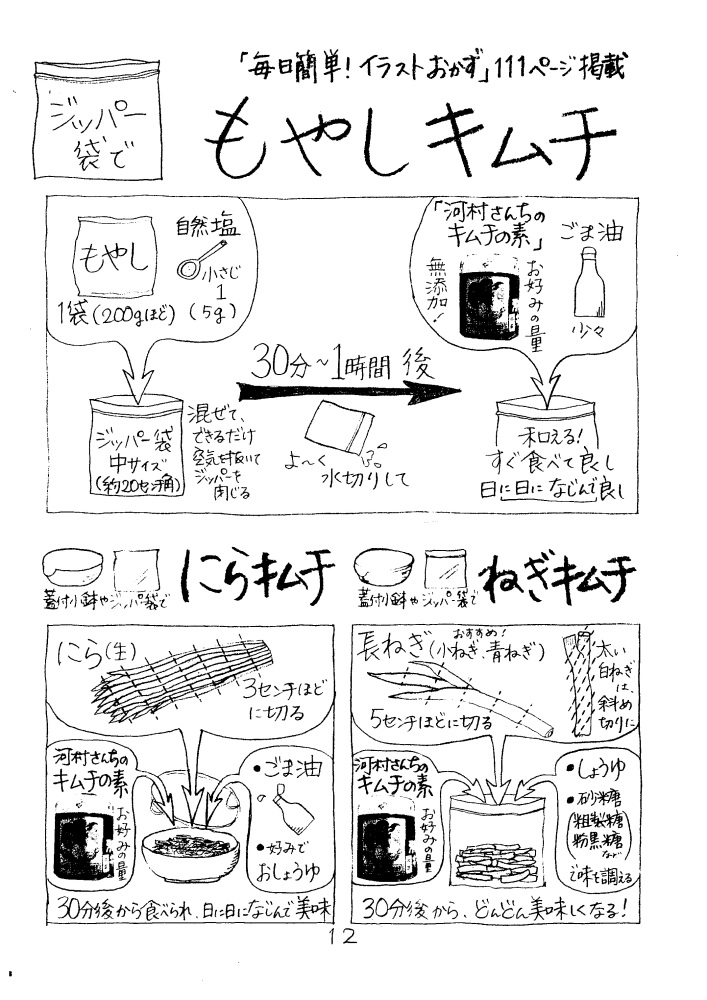 「毎日簡単！イラストおかず」111ページ掲載
ジッパー
袋で
もやしキムチ
もやし
1袋(200gほど)
自然塩
小さじ
1
(5g)
ジッパー袋
中サイズ
(約20センチ角)
混ぜて、
できるだけ
空気を抜いて
ジッパーを
閉じる
30分～1時間 後
よ～く
水切りして
「河村さんちの
キムチの素」
無添加！
お好みの量
ごま油
少々
和える！
すぐ食べて良し
日に日に なじんで良し
蓋付小鉢やジッパー袋で
にらキムチ
にら(生)
3センチほど
に切る
河村さんちの
キムチの素
お好みの量
・ごま油
・好みで
おしょうゆ
30分後から食べられ、日に日になじんで美味
蓋付小鉢やジッパー袋で
ねぎキムチ
おすすめ！
長ねぎ(小ねぎ、青ねぎ)
5センチほどに切る
太い
白ねぎ
は、
斜め
切りに
河村さんちの
キムチの素
お好みの量
・しょうゆ
・砂糖
(粗製糖
粉黒糖
など)
で味を調える
30分後から、どんどん美味しくなる！
12